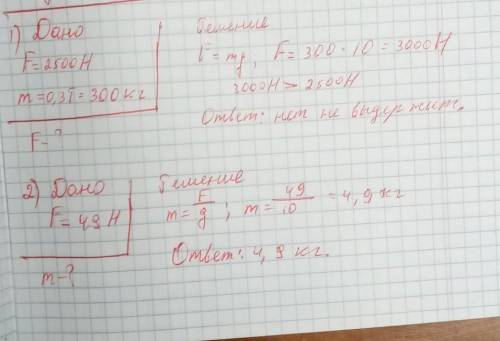 1) Дано
F=2500Н
m=0,3Т=300кг
F-?
Решение
F=mg; F=300·10=3000Н
3000Н>2500Н
Ответ: нет не выдержит.
2) Дано
F=49Н
m-?
Решение
m=F/g; m=49/10=4,9кг
Ответ: 4,9 кг.